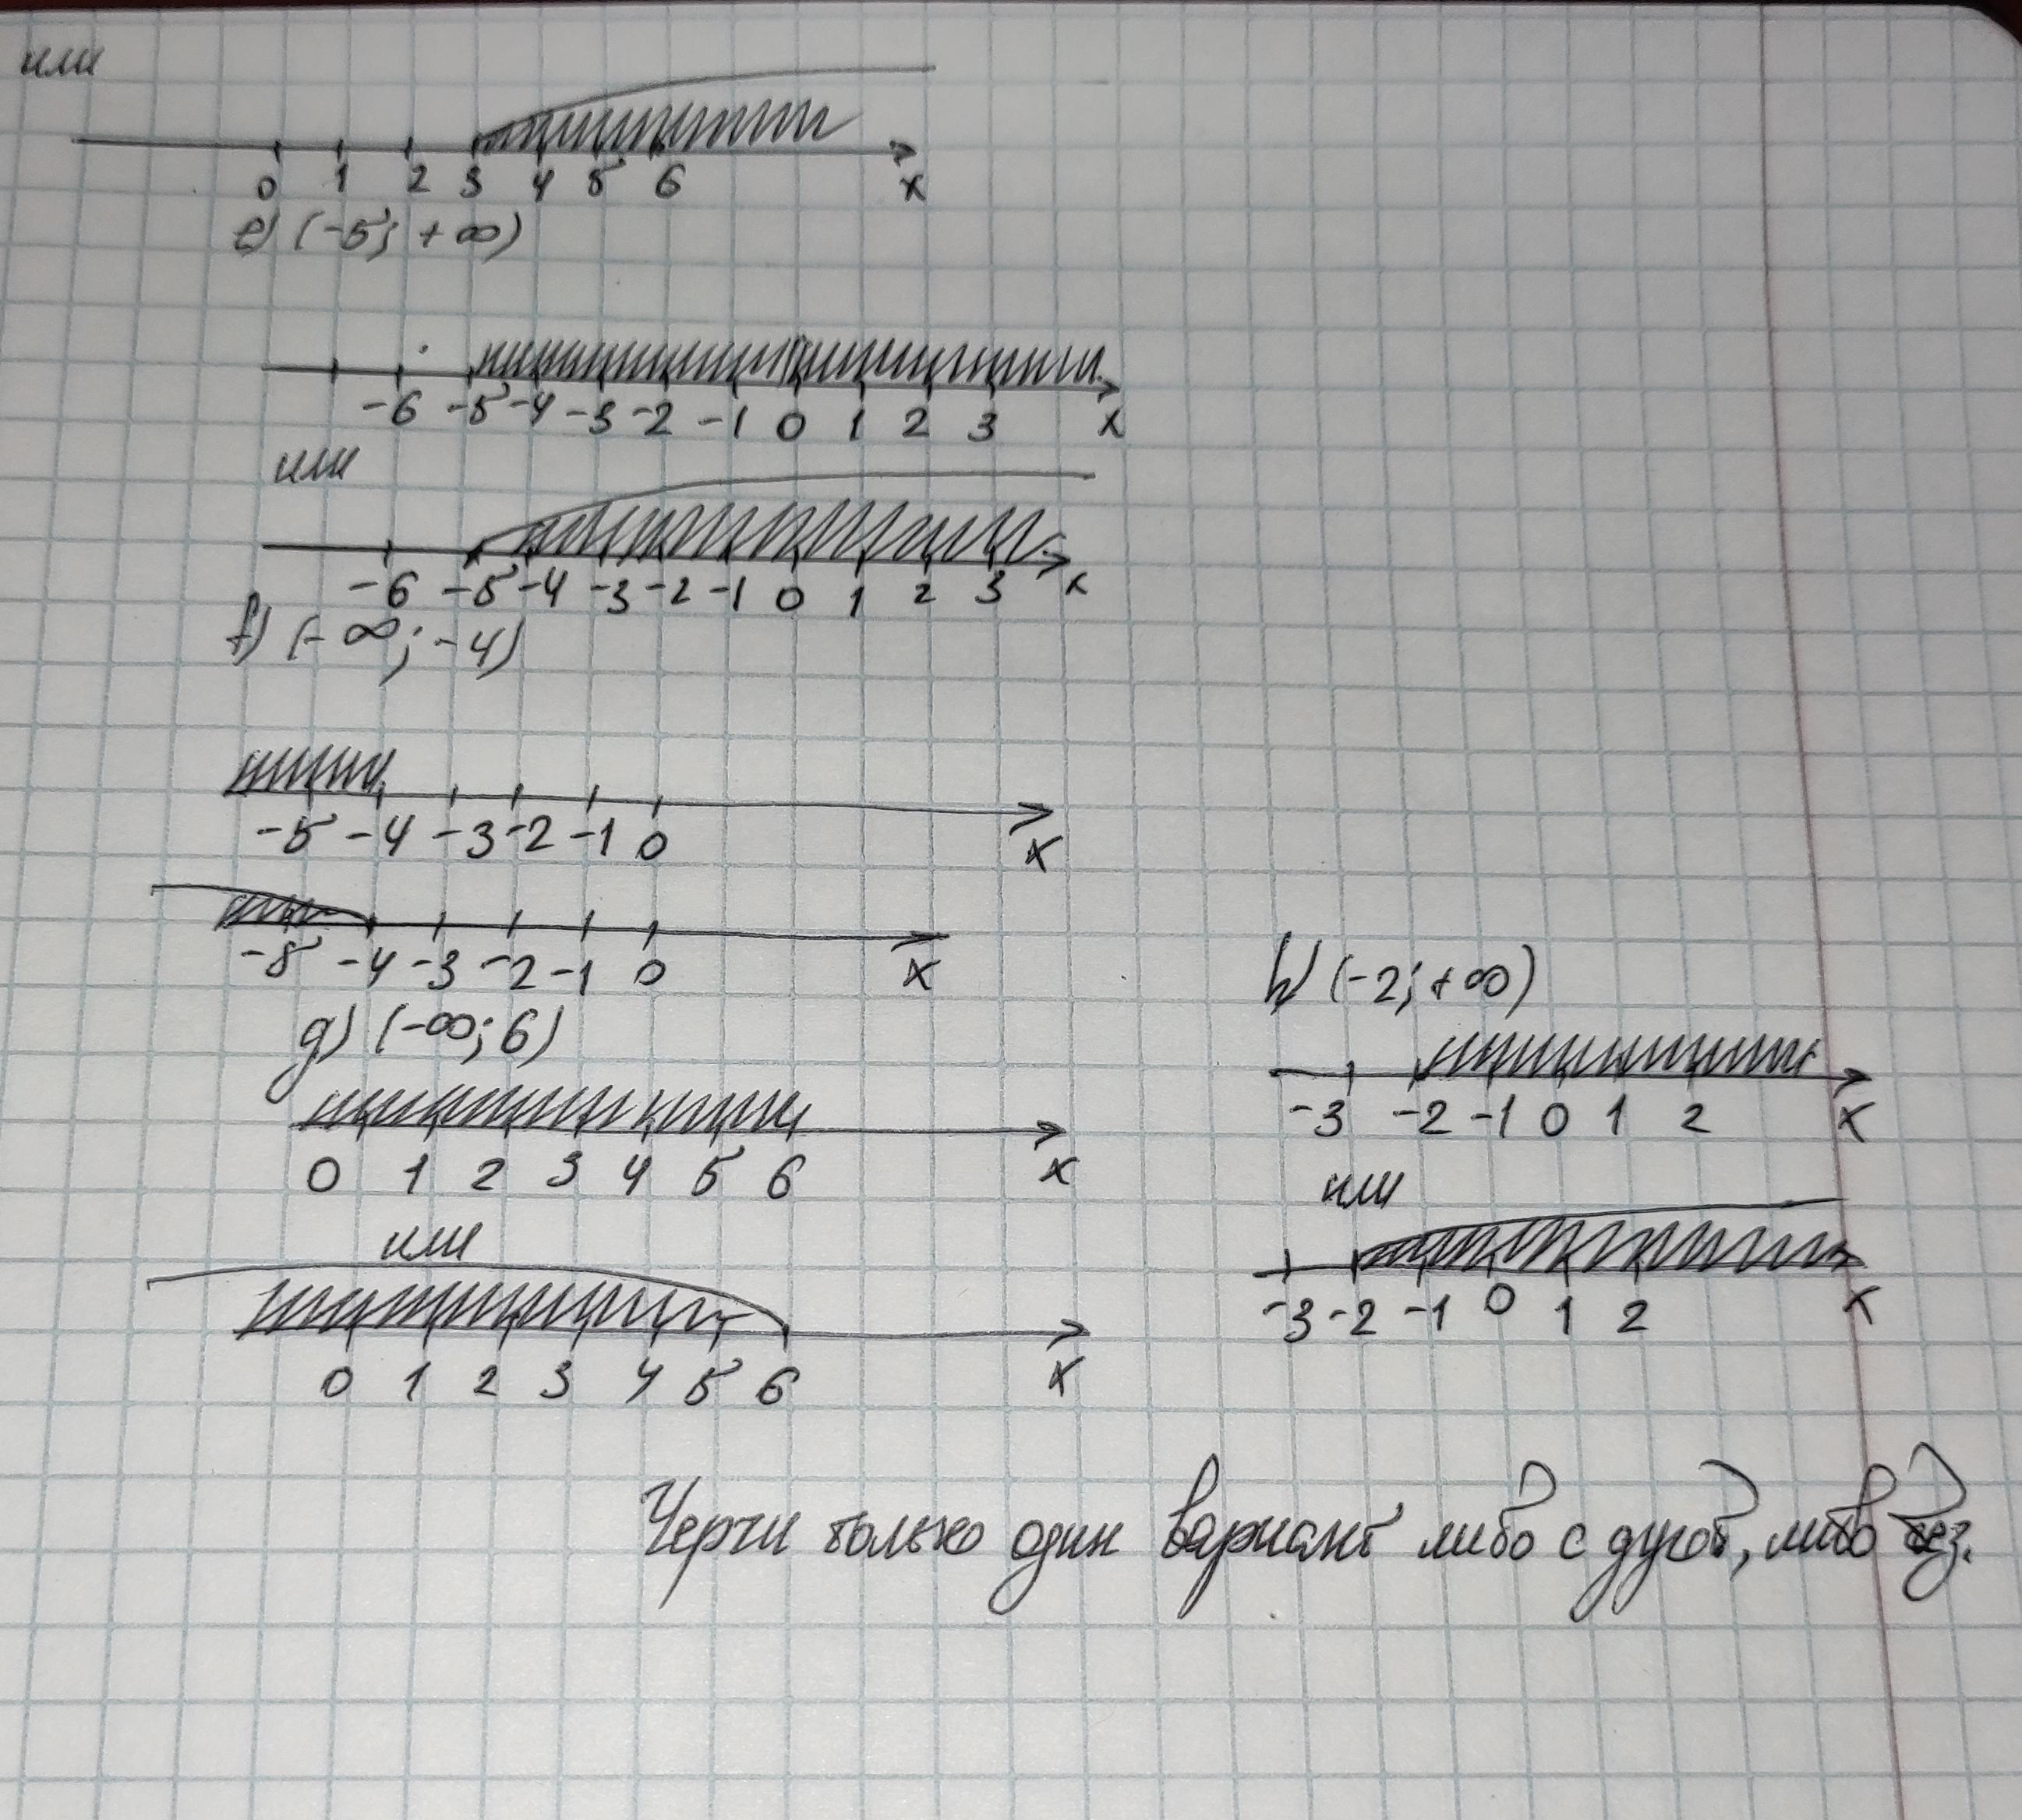 или
0 1 2 3 4 5 6 x
e) (-5; +∞)
-6 -5 -4 -3 -2 -1 0 1 2 3 x
или
-6 -5 -4 -3 -2 -1 0 1 2 3 x
f) (-∞; -4)
-5 -4 -3 -2 -1 0 x
-5 -4 -3 -2 -1 0 x
g) (-∞; 6)
0 1 2 3 4 5 6 x
или
0 1 2 3 4 5 6 x
h) (-2; +∞)
-3 -2 -1 0 1 2 x
или
-3 -2 -1 0 1 2 x
Черчи только один вариант либо с дугой, либо без.